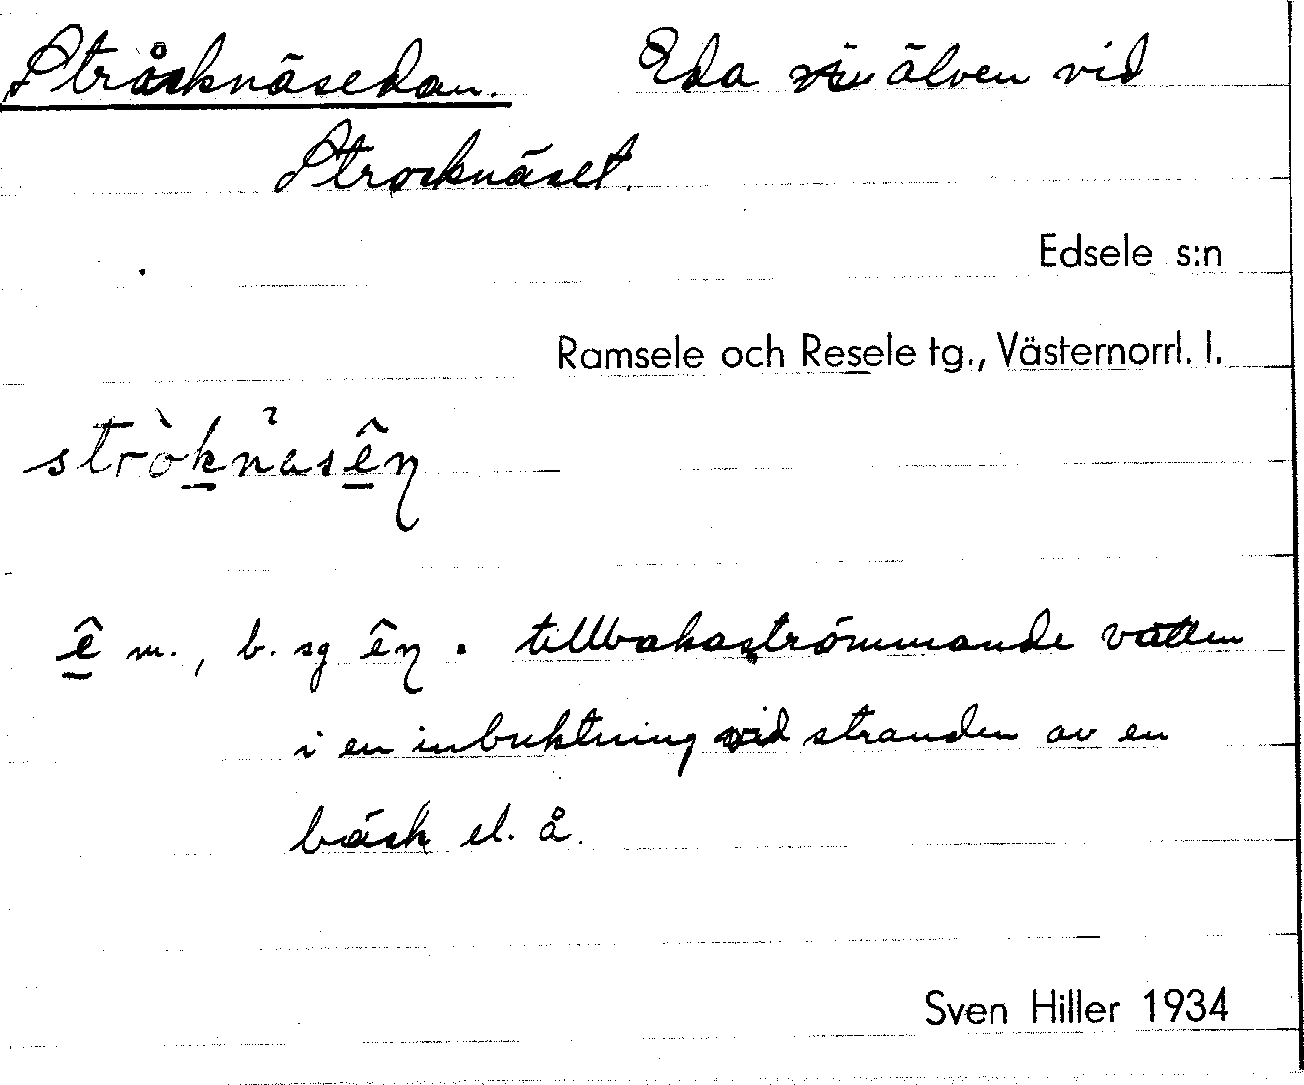 Stråcknäsedan. Eda i älven vid
Strocknäset.
Edsele s:n
Ramsele och Resele tg., Västernorrl. l.
ê m., b. sg tillbakaströmmande vatten
i en inbuktning vid stranden av en
bäck el. å.
Sven Hiller 1934